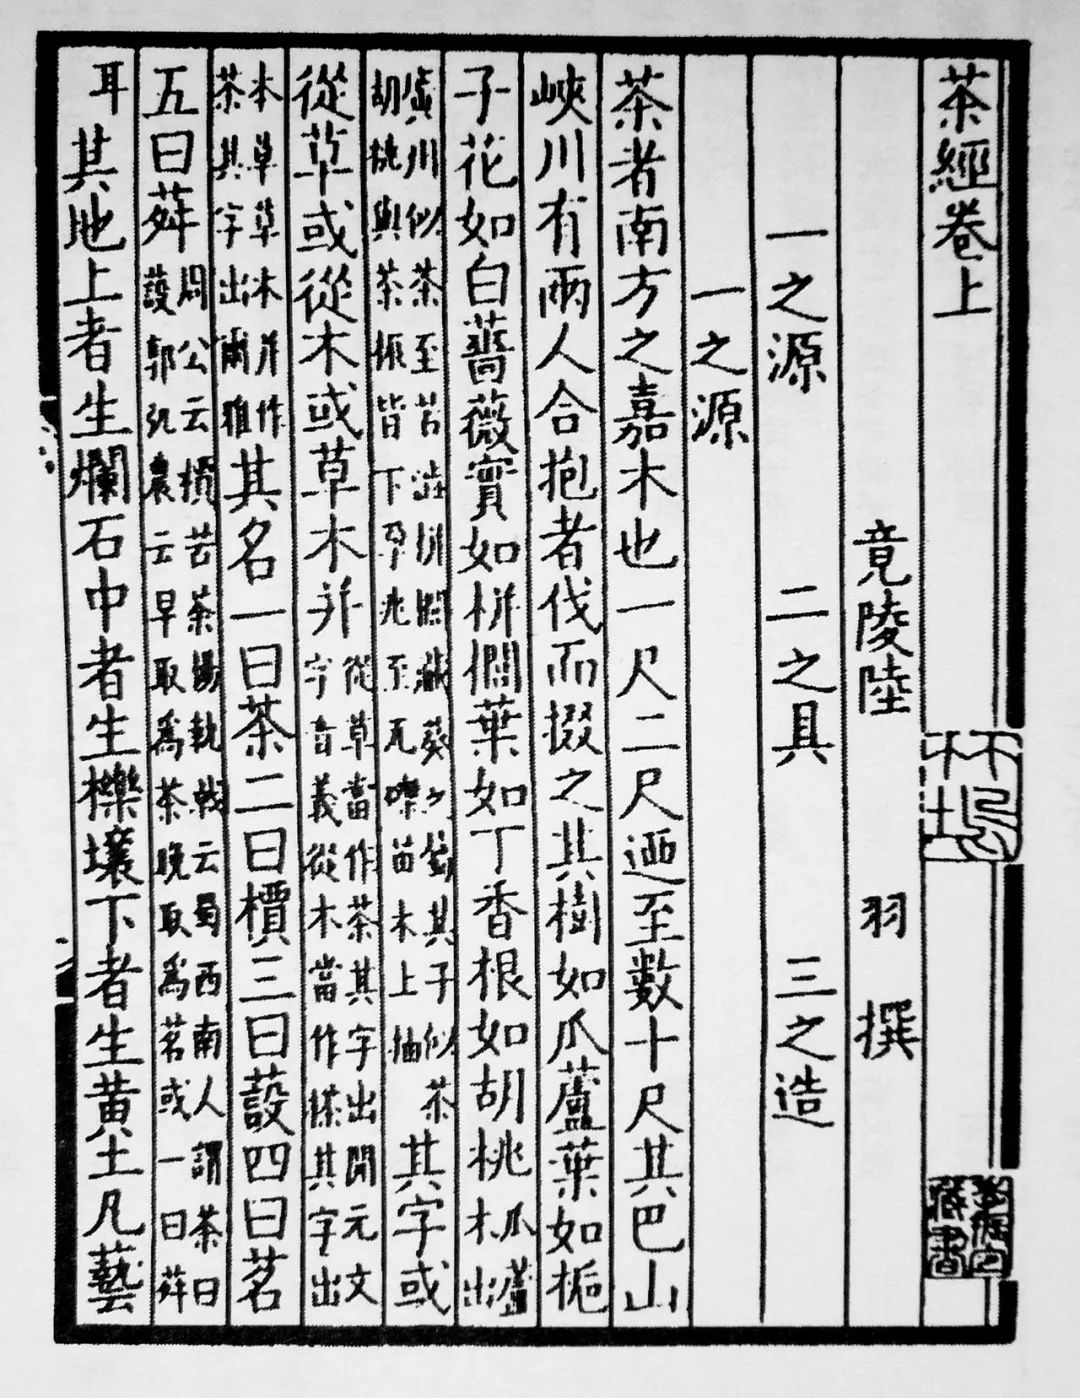 茶經卷上
竟陵陸 羽 撰
一之源 二之具 三之造
一之源
茶者南方之嘉木也一尺二尺迺至數十尺其巴山
峽川有兩人合抱者伐而掇之其樹如瓜蘆葉如梔
子花如白薔薇實如栟櫚葉如丁香根如胡桃瓜蘆木出
廣川似茶至苦澁栟櫚葵其子似茶胡桃與茶振皆下孕兆至瓦礫苗木上抽其字或
從草或從木或草木并從草當作茶其字出開元文字音義從木當作搽其字出
本草草木并作茶其字出爾雅其名一曰茶二曰檟三曰蔎四曰茗
五曰荈周公云檟苦茶揚執戟云蜀西南人謂茶曰蔎郭弘農云早取爲茶晚取爲茗或一曰荈
耳其地上者生爛石中者生櫟壤下者生黄土凡藝
藏書